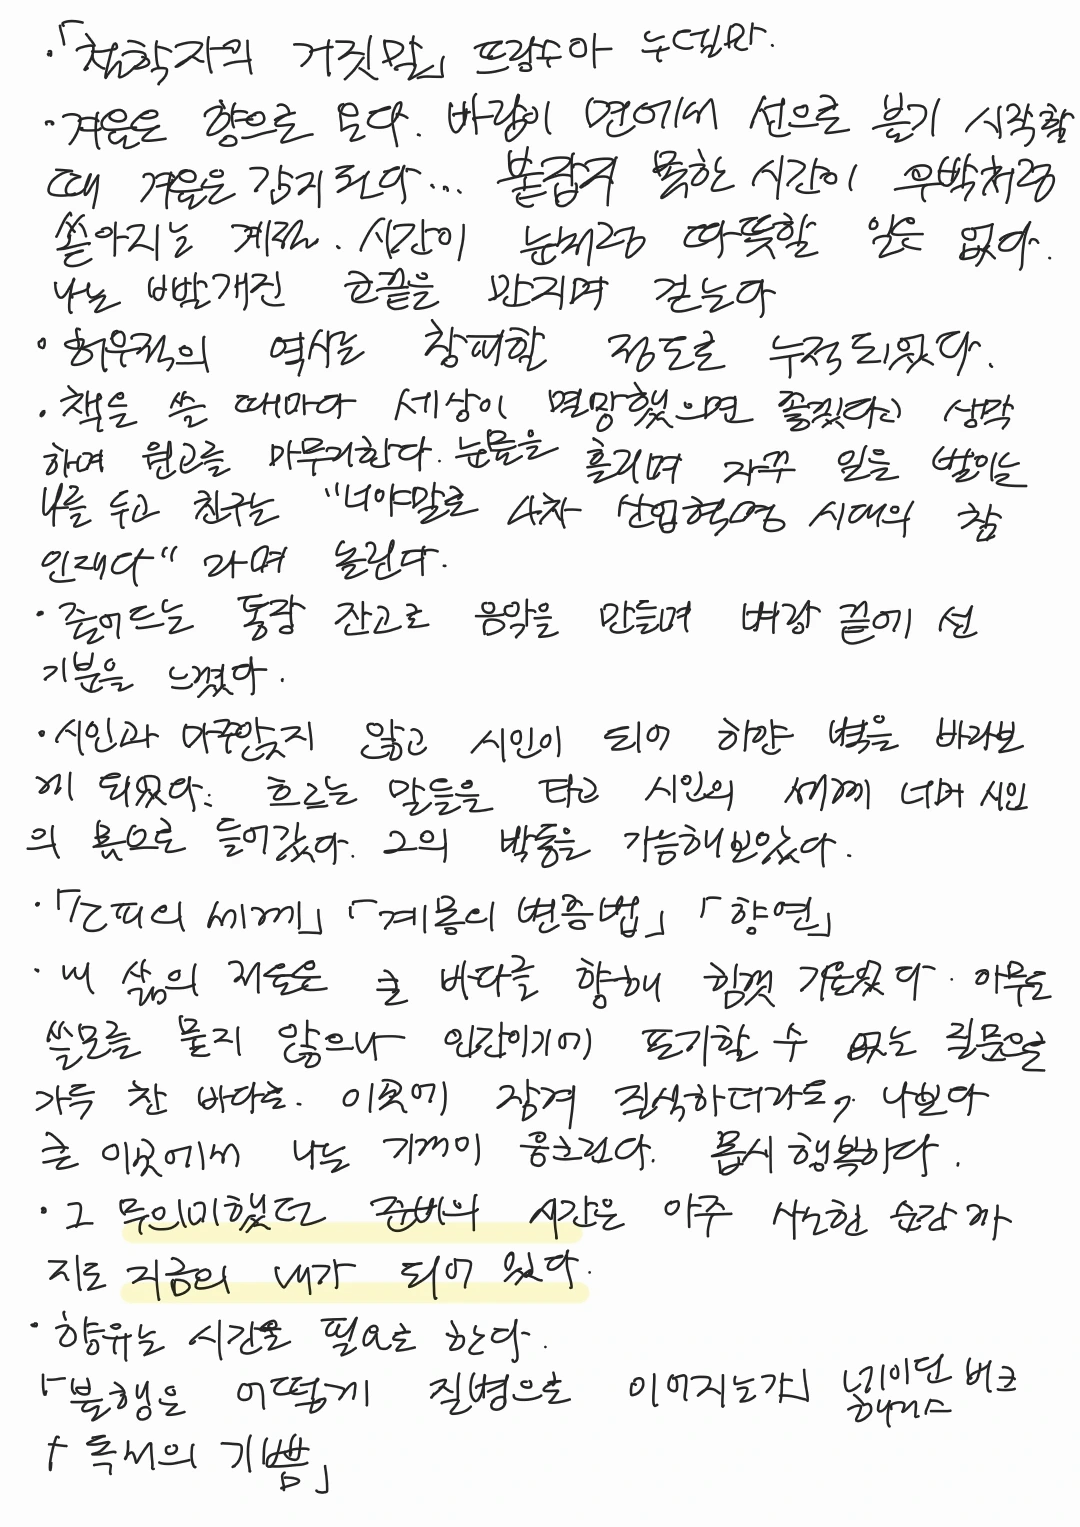 ·「철학자의 거짓말」 프랑수아 누델만.
· 겨울은 향으로 온다. 바람이 면에서 선으로 불기 시작할
때 겨울은 감지된다... 붙잡지 못한 시간이 우박처럼
쏟아지는 계절. 시간이 눈처럼 따뜻할 일은 없다.
나는 빨개진 코끝을 만지며 걷는다
· 허우적의 역사는 창피할 정도로 누적되었다.
· 책을 쓸 때마다 세상이 멸망했으면 좋겠다고 상상
하며 원고를 마무리한다. 눈물을 흘리며 자꾸 일을 벌이는
나를 두고 친구는 "너야말로 4차 산업혁명 시대의 참
인재다" 라며 놀린다.
· 줄어드는 통장 잔고로 음악을 만들며 벼랑 끝에 선
기분을 느꼈다.
· 시인과 마주앉지 않고 시인이 되어 하얀 벽을 바라보
게 되었다. 흐르는 말들을 타고 시인의 세계 너머 시인
의 몸으로 들어갔다. 그의 박동을 가늠해보았다.
·「소피의 세계」「계몽의 변증법」「향연」
· 내 삶의 저울은 늘 바다를 향해 힘껏 기울었다. 아무도
쓸모를 묻지 않으나 인간이기에 포기할 수 없는 질문으로
가득 찬 바다로. 이곳에 잠겨 질식하더라도, 나보다
큰 이곳에서 나는 기꺼이 웅크린다. 몹시 행복하다.
· 그 무의미했던 준비의 시간은 아주 사소한 순간까
지도 지금의 내가 되어 있다.
· 향유는 시간을 필요로 한다.
「불행은 어떻게 질병으로 이어지는가」 네이딘 버크
해리스
「독서의 기쁨」